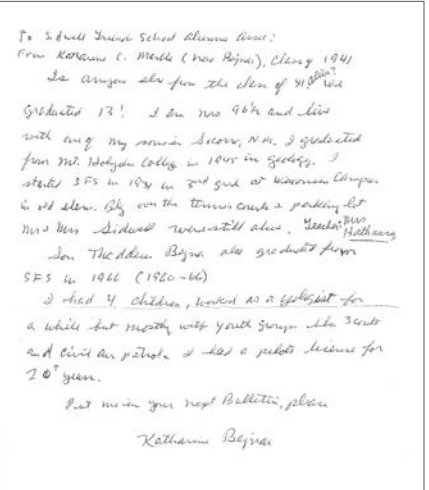 To Sidwell Friends School Alumni Assoc:
From Katharine C. Marble (now Bejnar), Class of 1941
Is anyone else from the class of 41 alive? We
graduated 13! I am now 96½ and live
with one of my sons in Socorro, N.M. I graduated
from Mt. Holyoke College in 1945 in geology. I
started SFS in 1931 in 3rd grade at Wisconsin Campus
in old elem. Bldg over the tennis courts & parking lot
Mr & Mrs Sidwell were still alive. Teacher: Mrs
Hathaway
Son Thaddeus Bejnar also graduated from
SFS in 1966 (1960-66)
I had 4 children, worked as a geologist for
a while but mostly with youth groups like Scouts
and Civil air patrol. I had a pilots license for
20+ years.
Put me in your next Bulletin, please
Katharine Bejnar